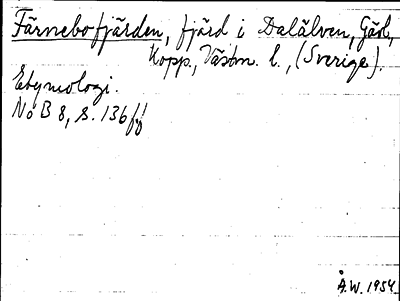 Färnebofjärden, fjärd i Dalälven, Gävl.,
Kopp., Västm. l., (Sverige).
Etymologi.
NoB 8, s. 136 ff.
Å.W. 1954.